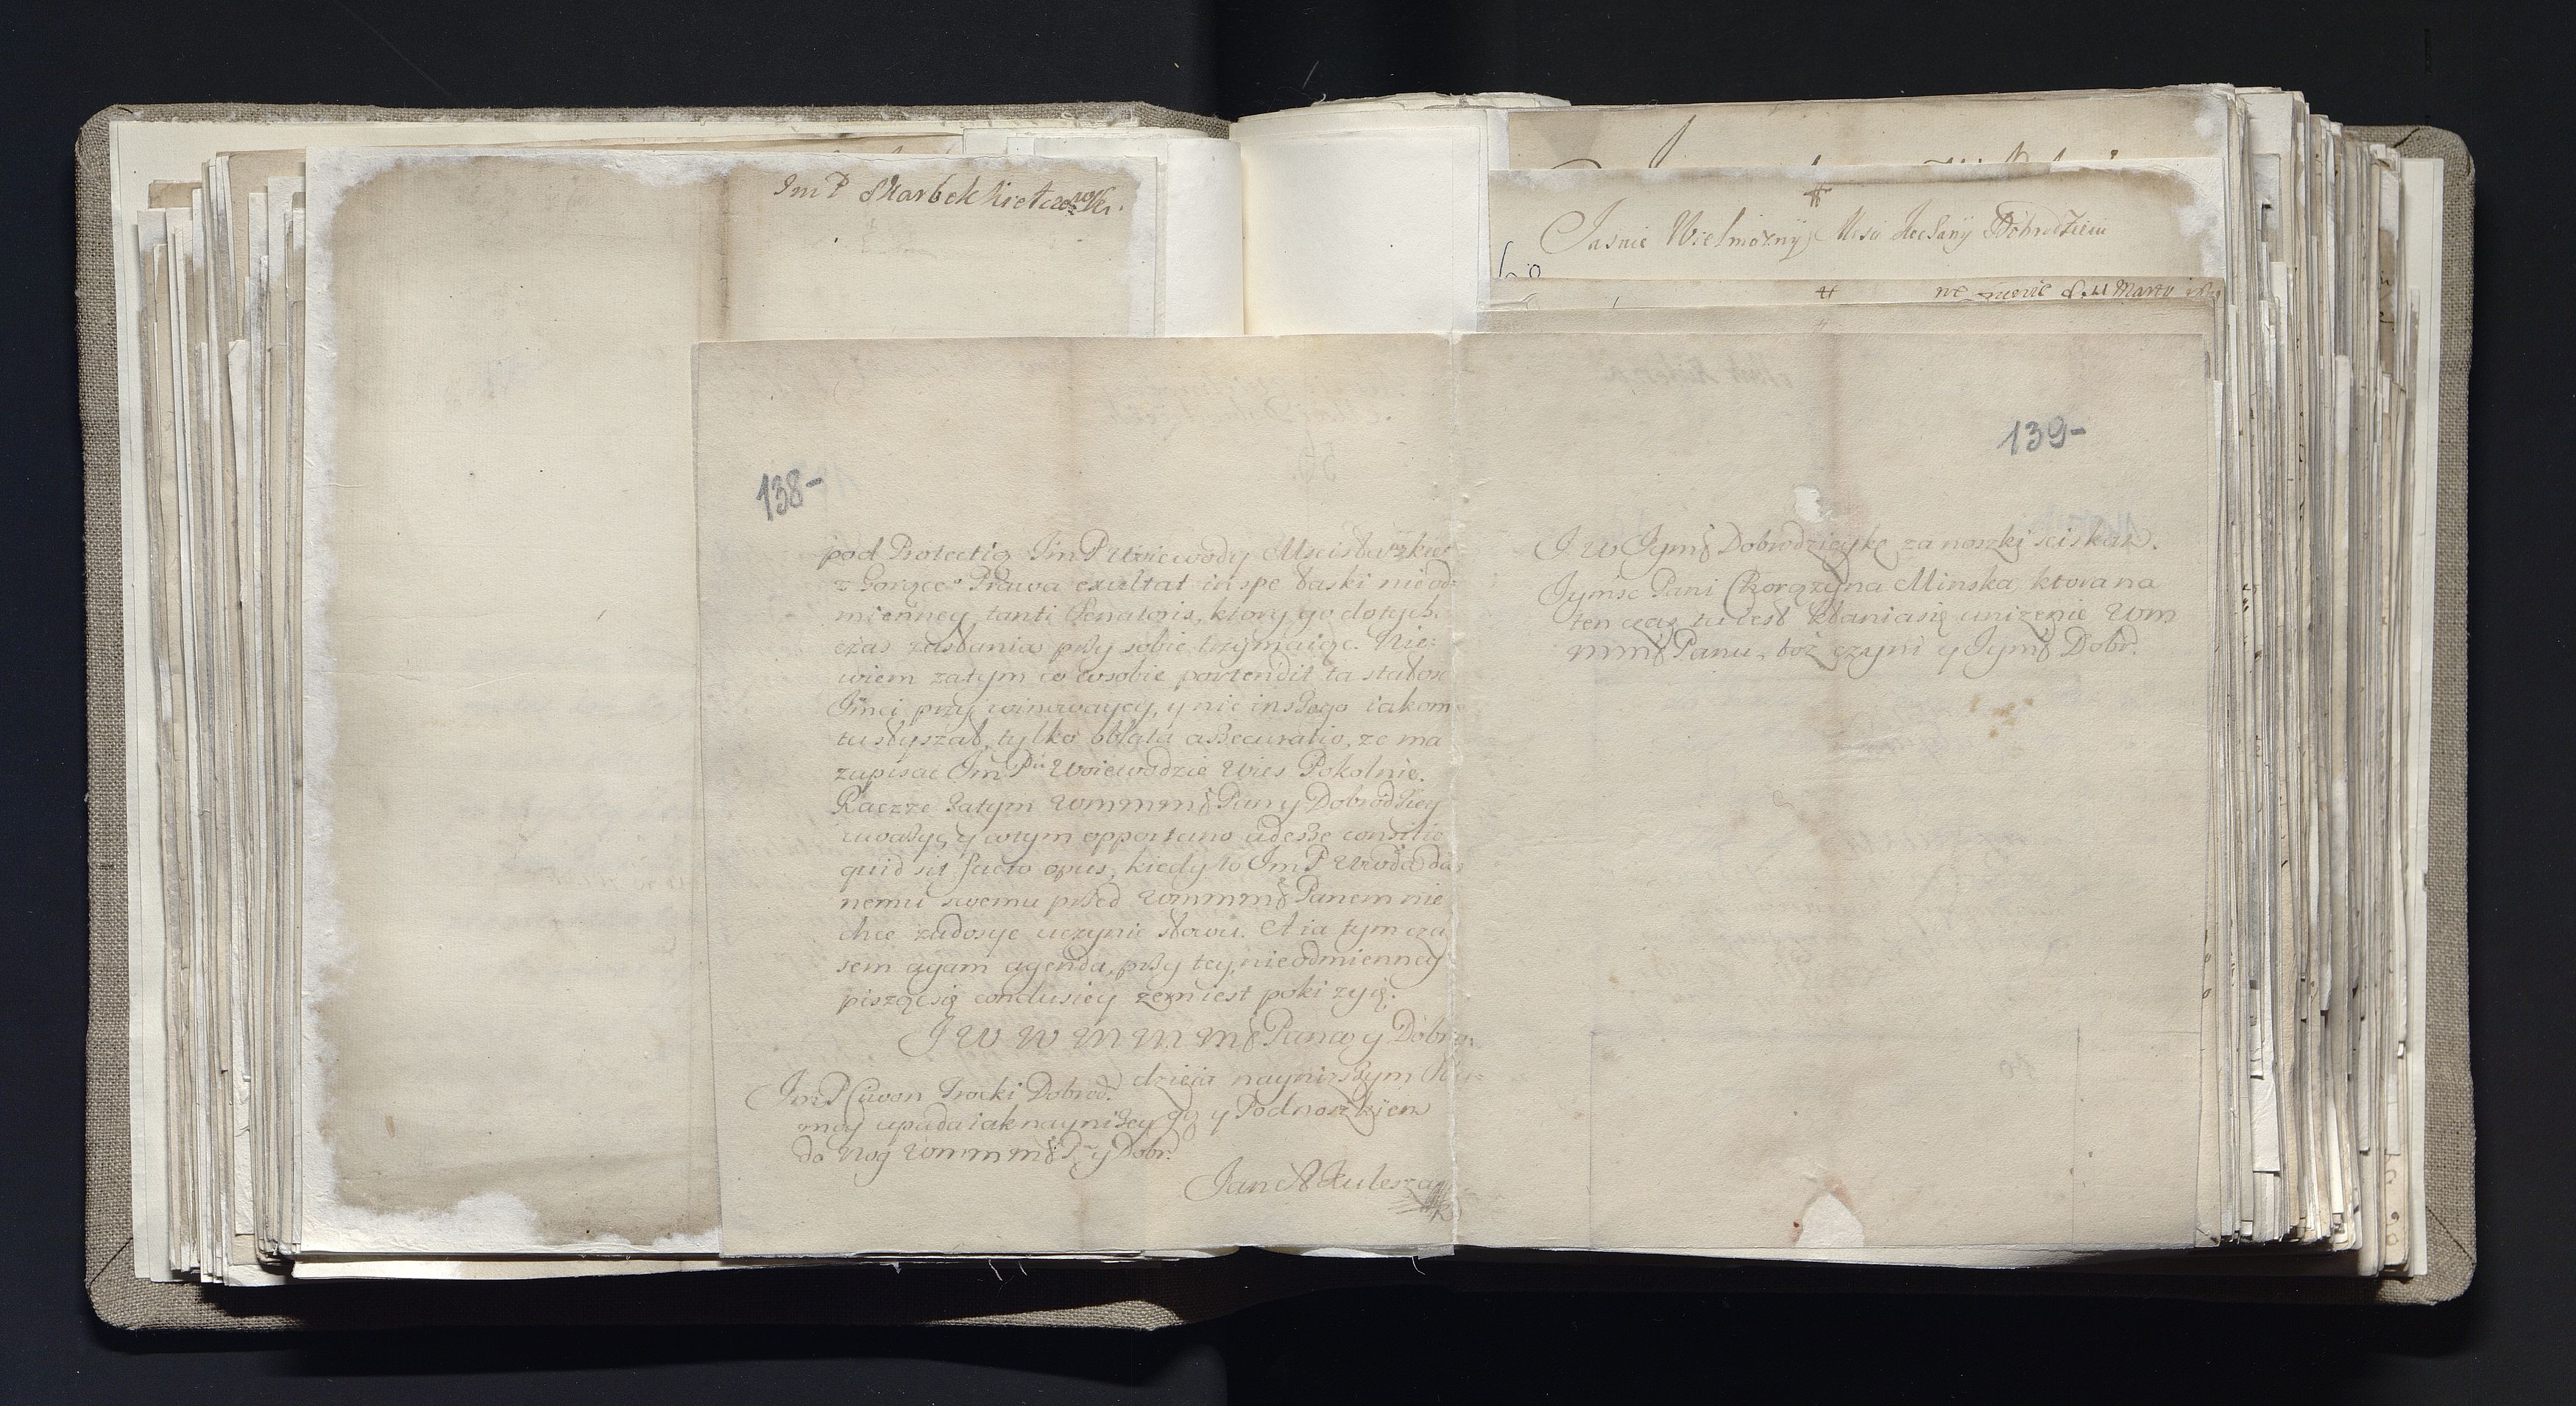 Im P Skarbek Kietcz
Jasnie Wielmożny Mosci Dobrodzieiu
Marty
138-
pod Protectią Im P Woiewody Mscisławskie
z Gorące Prawa exultat in spe łaski nieod:
mienney, tanti Senatoris, ktory go dotych.
czas zasłania przy sobie trzymaiąc. Nie:
wiem zatym co w sobie portendit ta słabosc
Jmci przy winowaycy, y nic inszego iakom
tu słyszał, tylko oblata assecuratio, ze ma
zapisac Im Pu Woiewodzie Wies Pokolnie.
Raczże zatym Wmmm Pan y Dobrodziey
uważyc y w tym opportuno adesse consilio
quid sit facto opus, kiedy to Im P Wda da
nemu swemu przed Wmmm Panem nie
chce zadosyc uczynic słowu. A ia tym cza
sem agam agenda, przy tey nieodmienney
piszącsię conclusiey zem iest poki zyię.
J W W M M M Pana y Dobro
dzieia nayniższym Słu=
gą y Podnożkiem
Jan A Kulesza
Im P Ciwon Trocki Dobrod.
moy upada iak nayniżey
do Nog Wmmm Pa y Dobr.
139-
J W Jym Dobrodzieykę za noszki sciskam.
Jymsc Pani Chorązyna Minska, ktora na
ten czas tu iest kłania się unizenie Wm
mm Panu, toż czyni y Jym Dobr.